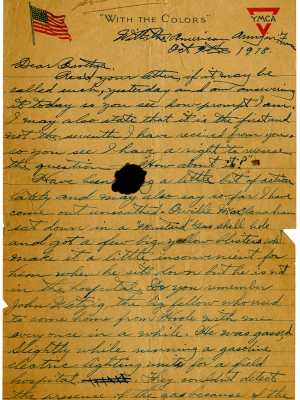 "WITH THE COLORS"
YMCA
With the American Army in France
Oct 1918.
Dear Brother.
Recd your letter, if it may be
called such, yesterday and am answering
it today so you see how prompt I am.
I may also state that it is the first and
not the seventh I have received from you
so you see I have a right to reverse
the question "How about it?"
Have been a little bit of action
lately and may also say so far I have
come out unscathed. Orville MacClanahan
sat down in a Mustard Gas shell hole
and got a few big yellow blisters which
make it a little inconvenient for
him when he sits down but he is not
in the hospital. Do you remember
John the big fellow who used
to come home from with me
every once in a while. He was gassed
slightly while running a gasoline
electric lighting unit for a field
hospital. They couldn't detect
the presence of the gas because of the